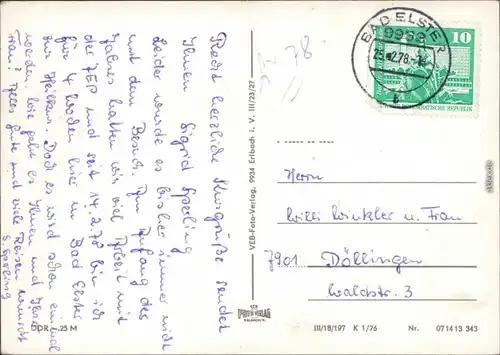 Recht herzliche Kurgrüße sendet
Ihnen Sigrid Sperling
Leider wurde es bisher immer nicht
mit dem Besuch. Am Anfang des
Jahres hatten wir viel Arbeit mit
der JEP und seit 14.2.78 bin ich
für 4 Wochen hier in Bad Elster
zur Heilkur. Das es wird schon einmal
werden. Wie geht es Ihnen und Ihrer
Frau? Alles Gute und viele Reisen wünscht
S. Sperling
DDR -,25 M
VEB-Foto-Verlag, 9934 Erlbach i. V. III/23/27
78
BAD ELSTER
9933
25.-2.78.-
b
10
DEUTSCHE DEMOKRATISCHE REPUBLIK
Herrn
Willi Winkler u. Frau
7901 Döllingen
Waldstr. 3
III/18/197 K 1/76 Nr. 07 14 13 343